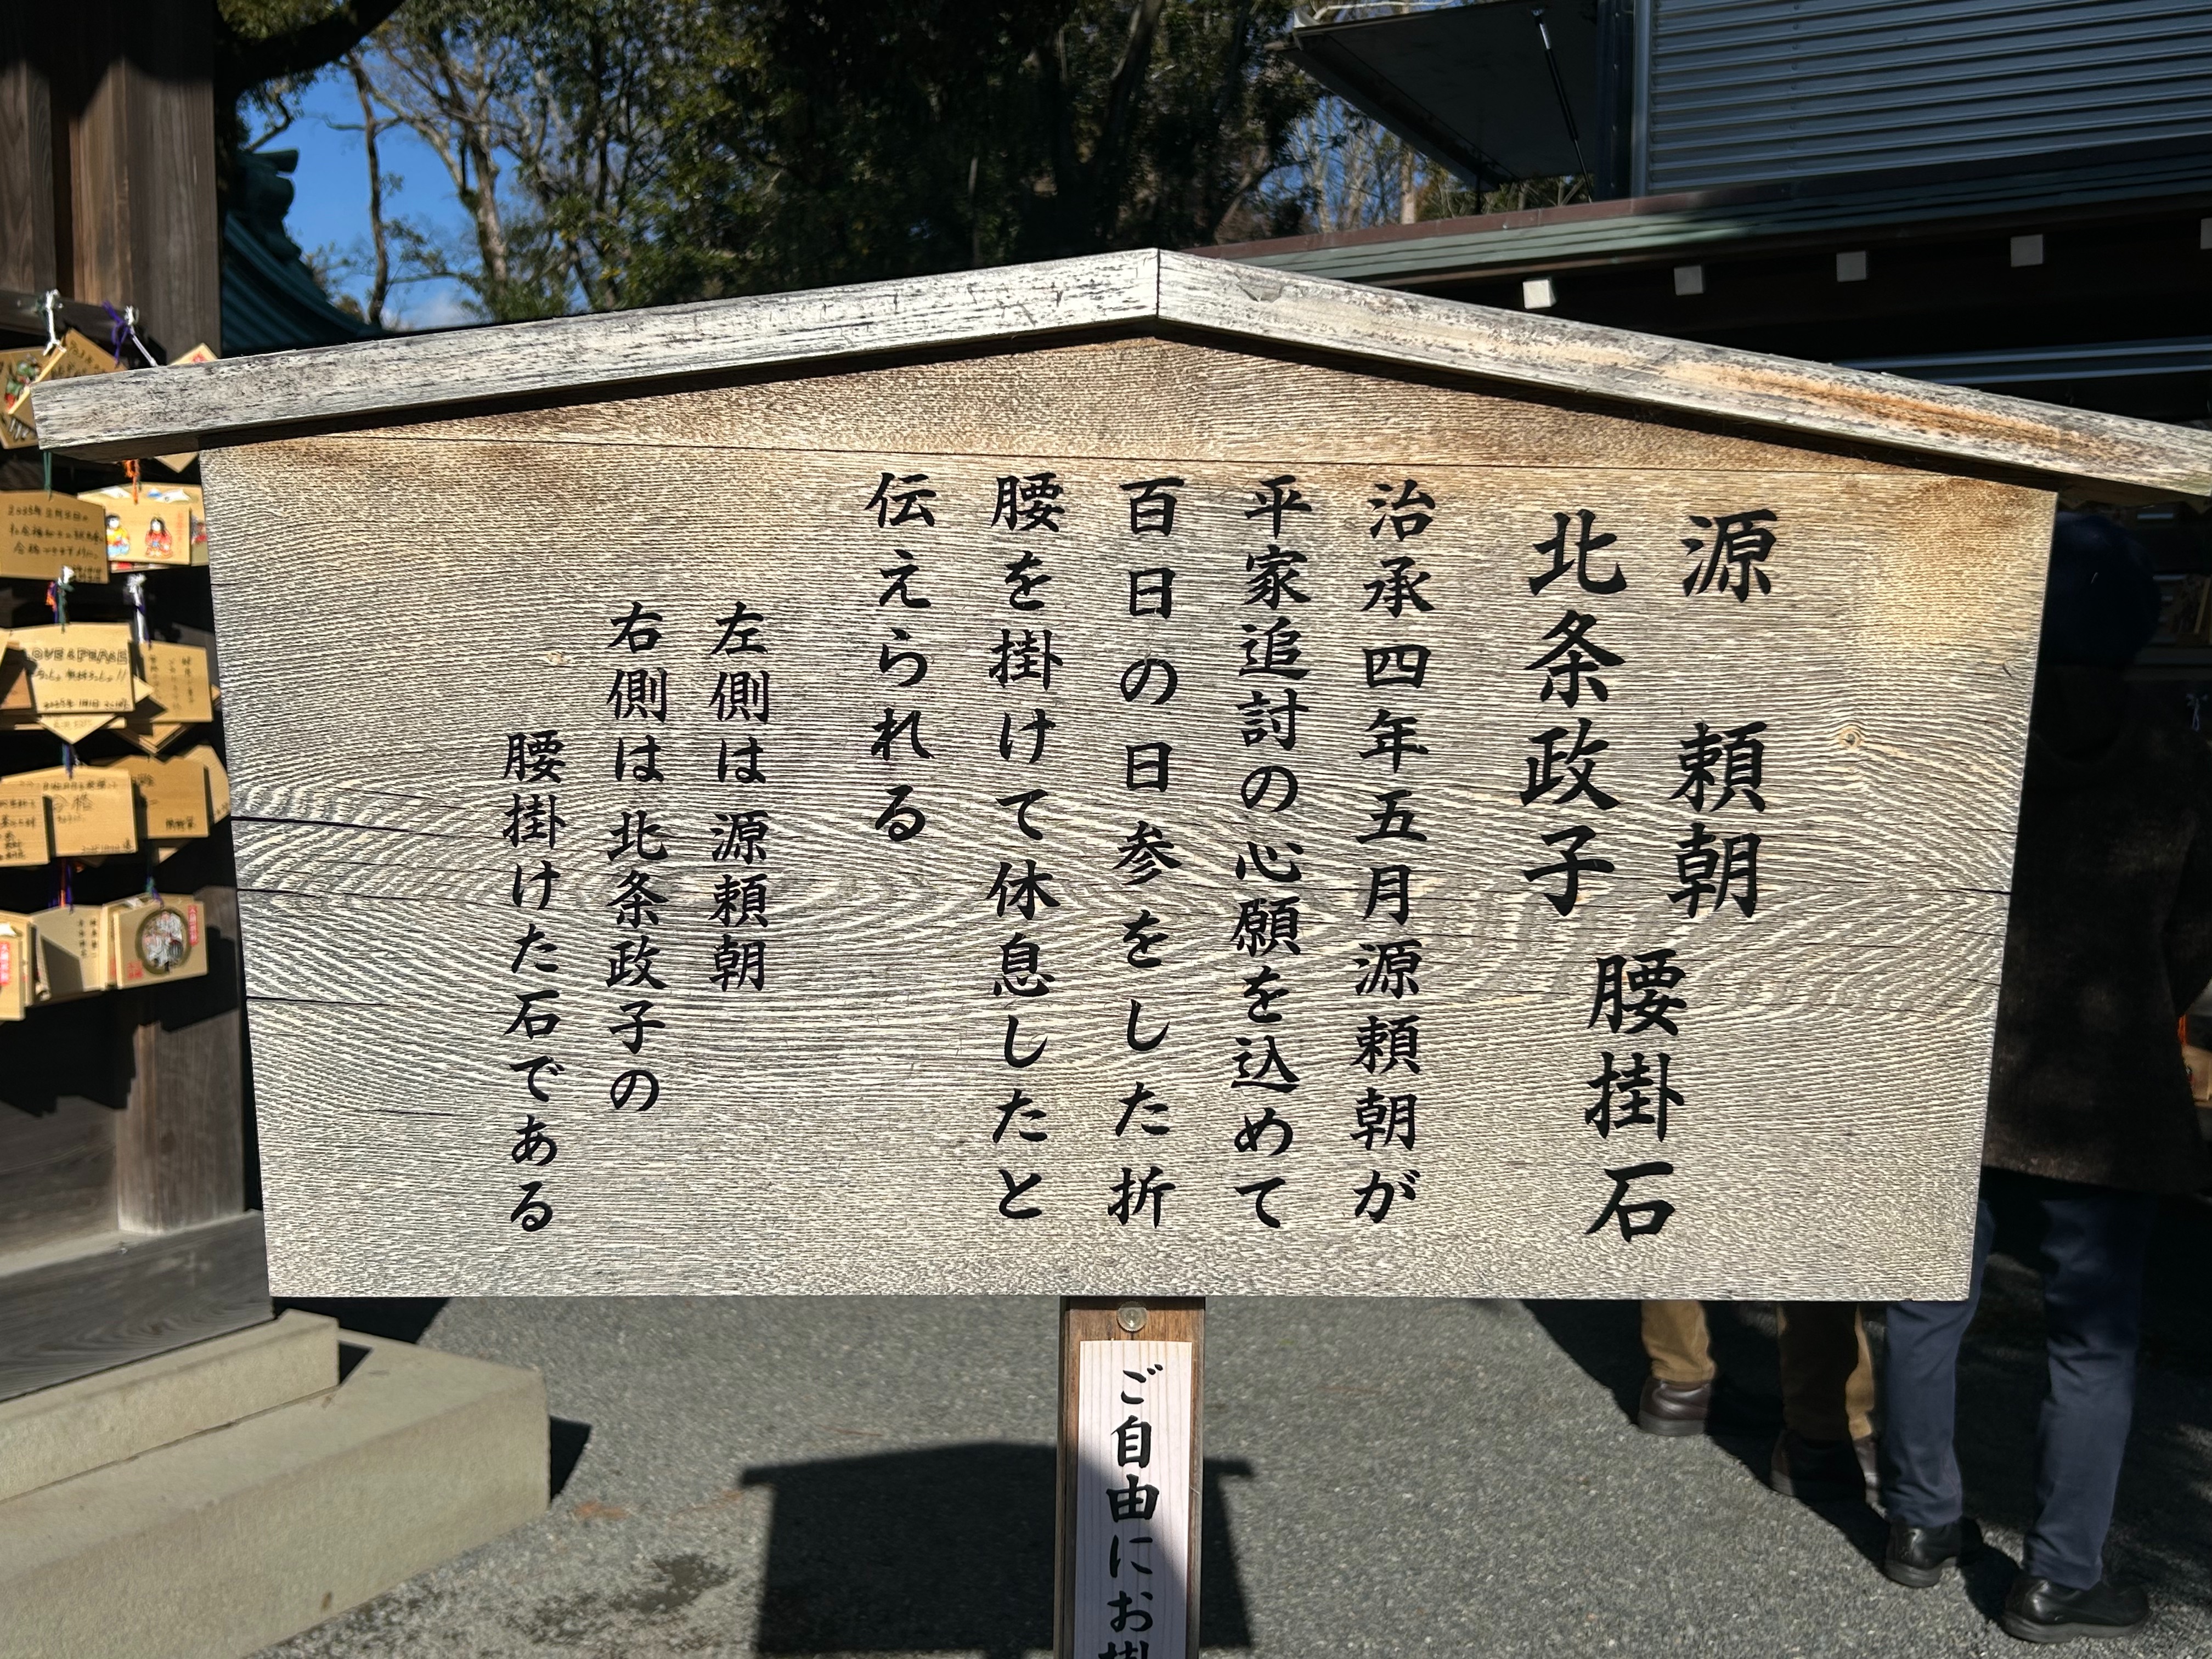 源 頼朝
北条政子
腰掛石
治承四年五月源頼朝が
平家追討の心願を込めて
百日の日参をした折
腰を掛けて休息したと
伝えられる
左側は源頼朝
右側は北条政子の
腰掛けた石である
ご自由にお掛